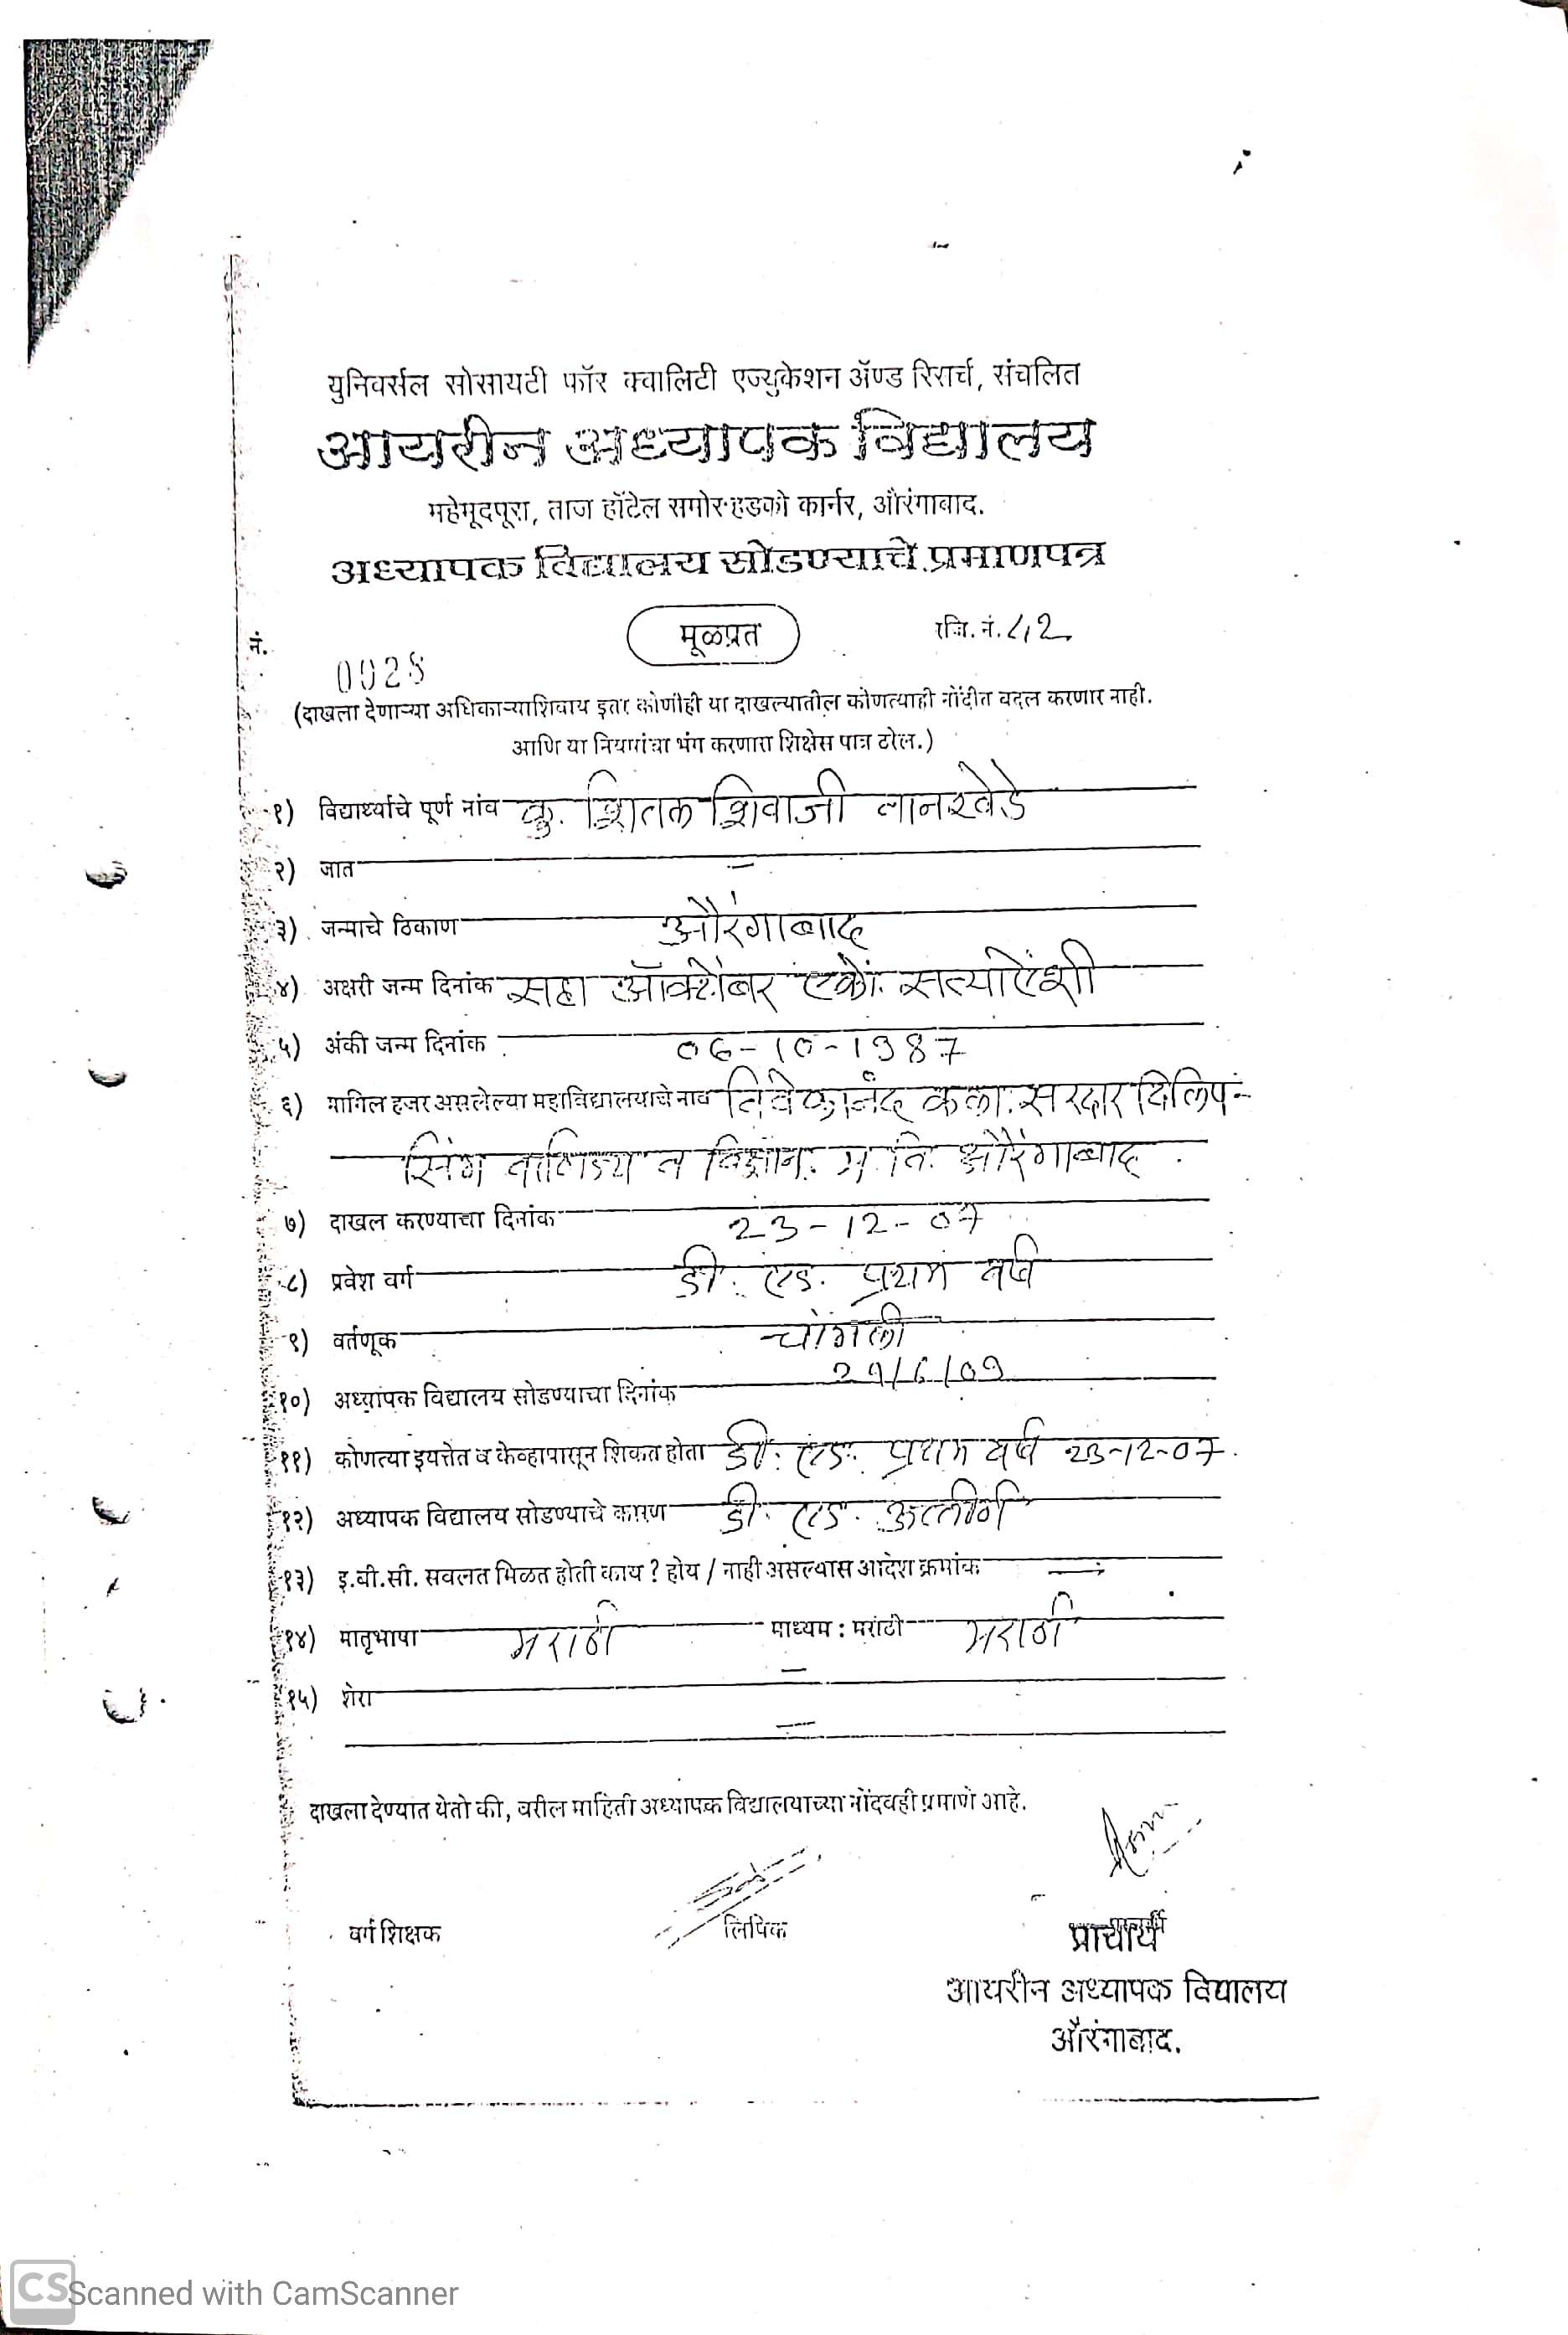 युनिवर्सल सोसायटी फॉर क्वालिटी एज्युकेशन ॲण्ड रिसर्च, संचलित
आयरीन अध्यापक विद्यालय
महेमूदपूरा, ताज हॉटेल समोर हडको कार्नर, औरंगाबाद.
अध्यापक विद्यालय सोडण्याचे प्रमाणपत्र
नं. मूळप्रत रजि. नं. 42
(दाखला देणाऱ्या अधिकाऱ्याशिवाय इतर कोणीही या दाखल्यातील कोणत्याही नोंदीत बदल करणार नाही.
आणि या नियमांचा भंग करणारा शिक्षेस पात्र ठरेल.)
१) विद्यार्थ्याचे पूर्ण नांव कु. शितल शिवाजी वानखेडे
२) जात -
३) जन्माचे ठिकाण औरंगाबाद
४) अक्षरी जन्म दिनांक सहा ऑक्टोंबर एकों. सत्याऐंशी
५) अंकी जन्म दिनांक 06-10-1987
६) मागिल हजर असलेल्या महाविद्यालयाचे नाव विवेकानंद कला. सरदार दिलिप-
सिंग वाणिज्य व विज्ञान. म. वि. औरंगाबाद.
७) दाखल करण्याचा दिनांक 23-12-07
८) प्रवेश वर्ग डी. एड. प्रथम वर्ष
९) वर्तणूक चांगली
१०) अध्यापक विद्यालय सोडण्याचा दिनांक
११) कोणत्या इयत्तेत व केव्हापासून शिकत होता डी. एड. प्रथम वर्ष 23-12-07.
१२) अध्यापक विद्यालय सोडण्याचे कारण डी. एड. उत्तीर्ण
१३) इ.बी.सी. सवलत मिळत होती काय? होय / नाही असल्यास आदेश क्रमांक —
१४) मातृभाषा मराठी माध्यम : मराठी मराठी
१५) शेरा —
—
दाखला देण्यात येतो की, वरील माहिती अध्यापक विद्यालयाच्या नोंदवही प्रमाणे आहे.
वर्ग शिक्षक लिपिक प्राचार्य
आयरीन अध्यापक विद्यालय
औरंगाबाद.
CS Scanned with CamScanner